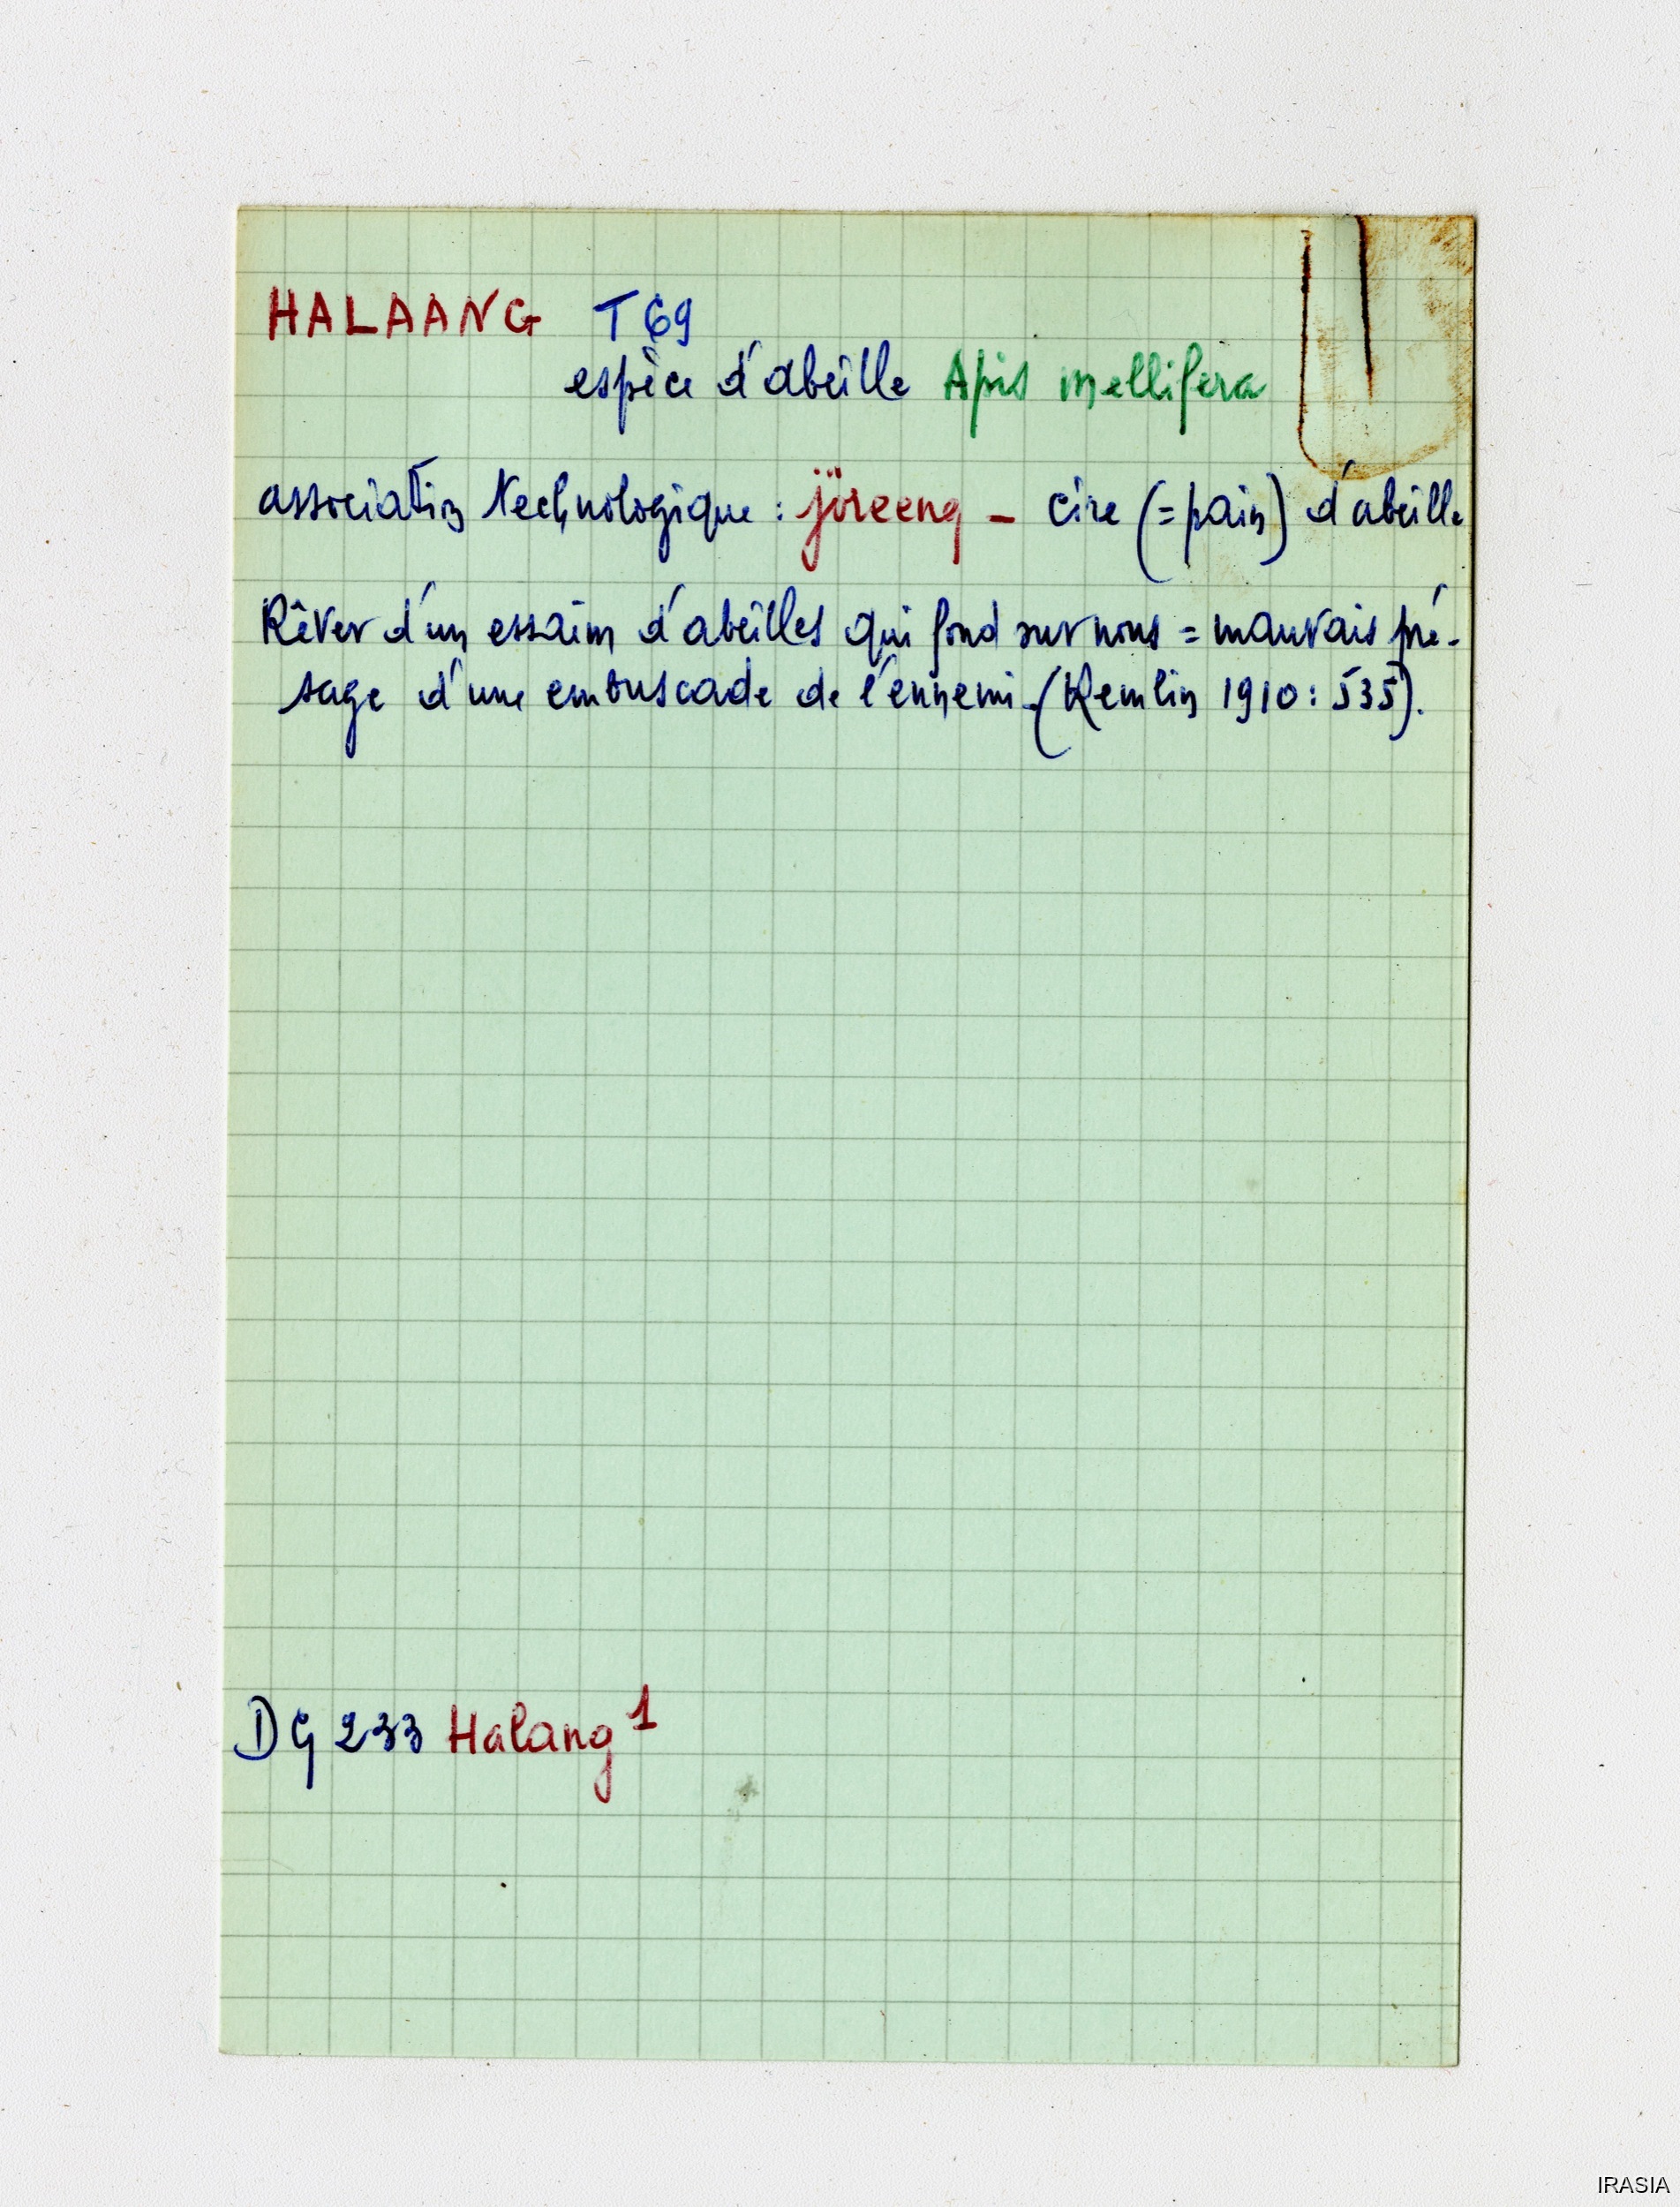 HALAANG T 69
espèce d'abeille Apis mellifera
association technologique : jöreeng – cire (= pain) d'abeille
Rêver d'un essaim d'abeilles qui fond sur nous = mauvais pré-
sage d'une embuscade de l'ennemi. (Kemlin 1910 : 535).
DG 233 Halang 1
IRASIA